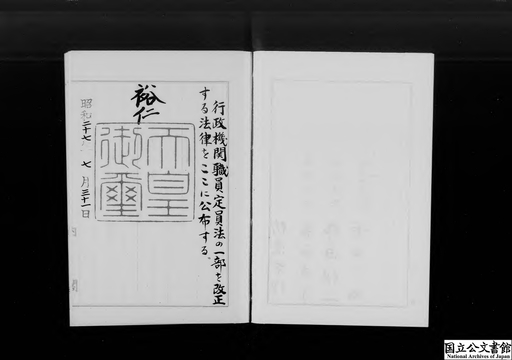 行政機関職員定員法の一部を改正
する法律をここに公布する。
裕仁
天皇
御璽
昭和二十七年七月三十一日
国立公文書館
National Archives of Japan